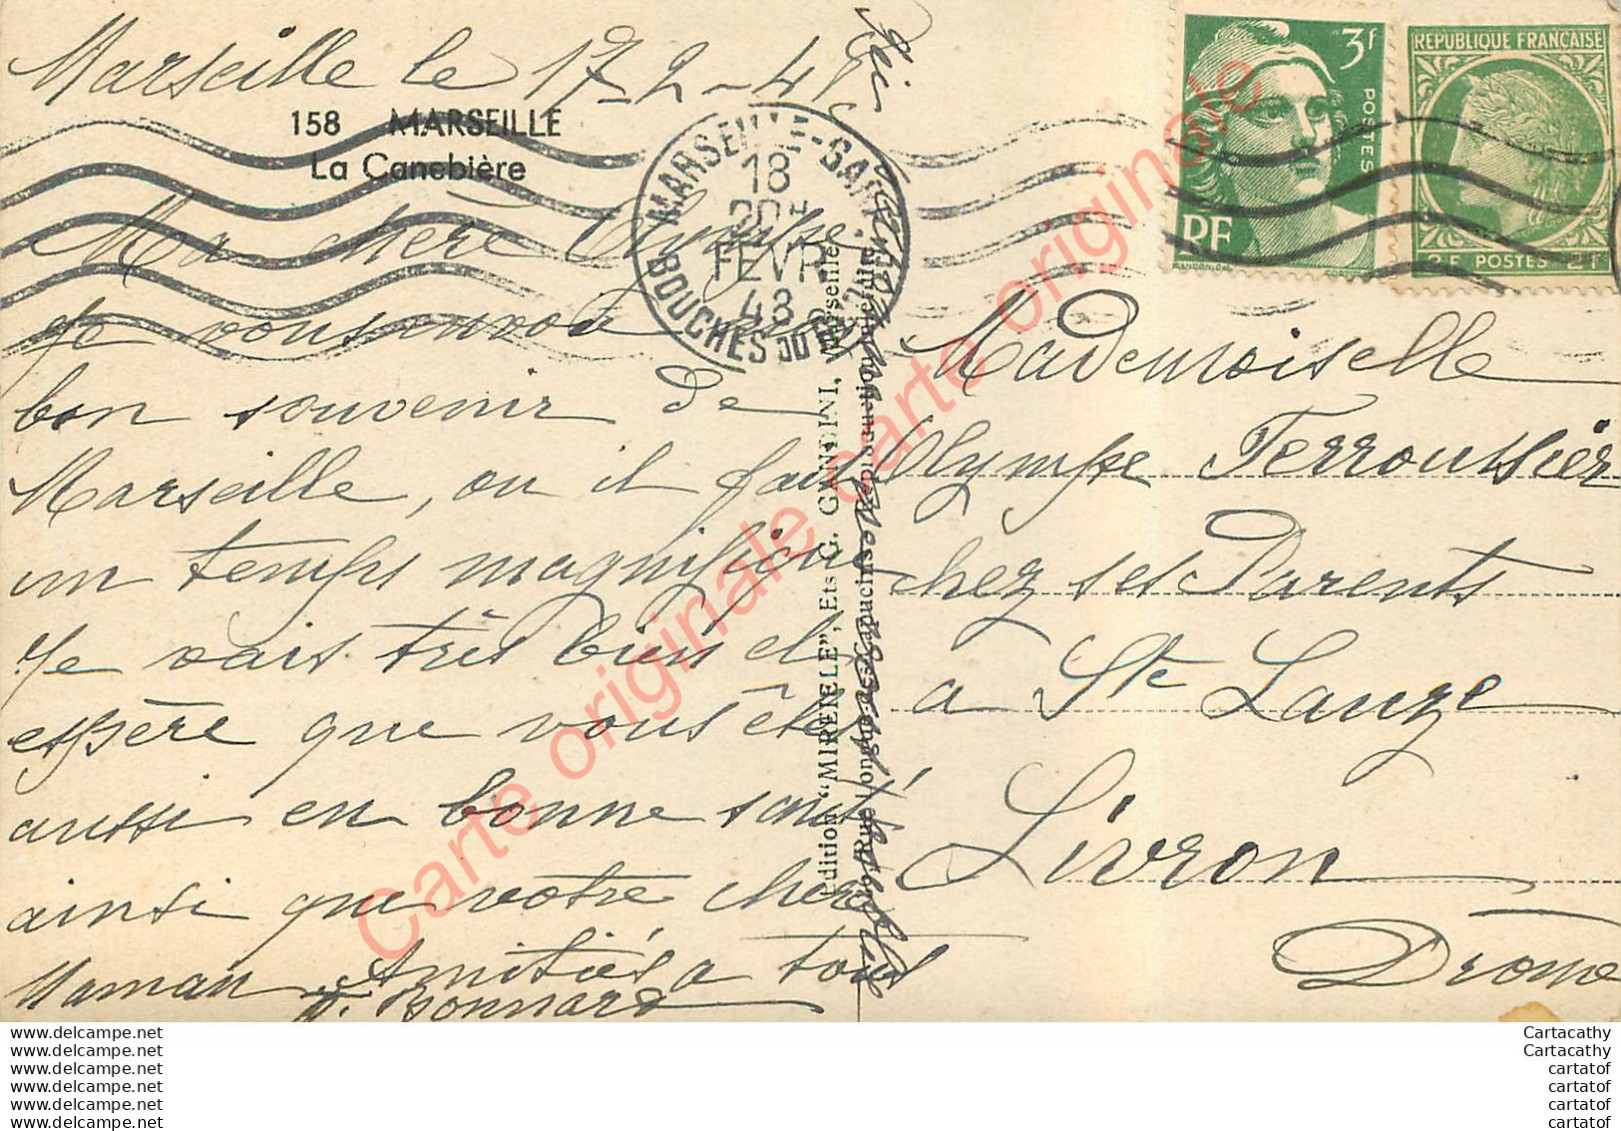 Marseille le 17-2-48
158 MARSEILLE
La Canebière
Ma chère Olympe
je vous envoie
bon souvenir de
Marseille, ou il fait
un temps magnifique
Je vais très bien et
espère que vous êtes
aussi en bonne santé
ainsi que votre chère
Maman Amitiés a tous
Bonnard
MARSEILLE-GARE
18
20H
FEVR
48
BOUCHES DU
Edition "MIREILLE", Ets G. GANDINI, Marseille
Rue Longue des Capucins Reproduction interdite
3f
POSTES
RF
REPUBLIQUE FRANÇAISE
2F POSTES 2F
Mademoiselle
Olympe Ferroussier
chez ses Parents
a Ste Lauze
Livron
Drome
Carte originale carte originale
www.delcampe.net
www.delcampe.net
www.delcampe.net
www.delcampe.net
www.delcampe.net
www.delcampe.net
Cartacathy
Cartacathy
cartatof
cartatof
cartatof
cartatof